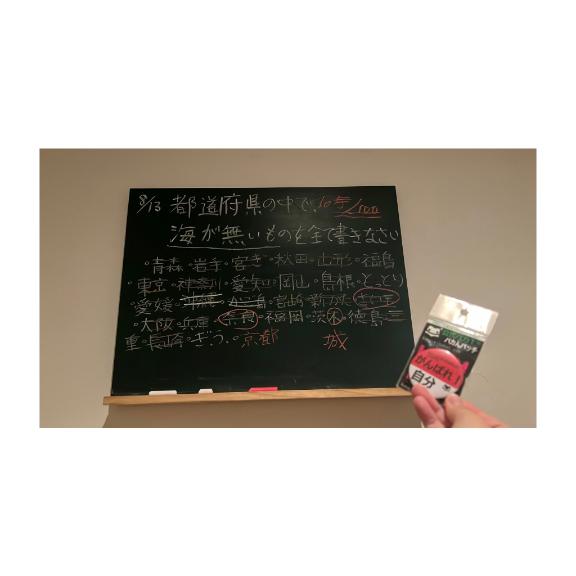 8/13 都道府県の中で、10点/100
海が無いものを全て書きなさい
・青森・岩手・宮き・秋田・山形・福島
・東京・神奈川・愛知・岡山・島根・とっとり
・愛媛・沖縄・かご島・宮崎・新がた・さいたま
・大阪・兵庫・奈良・福岡・茨木・徳島・三
重・長崎・ぎふ・京都 城
がんばれ!
自分